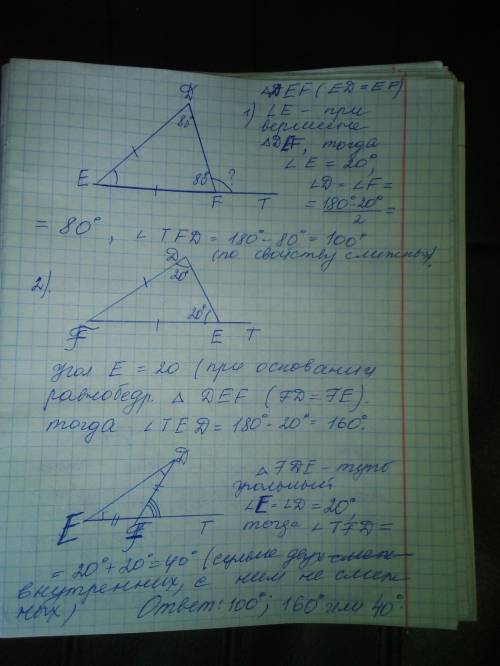 D
△DEF (ED = EF)
1) ∠E – при
вершине
△DEF, тогда
80°
∠E = 20°,
E
80°
?
∠D = ∠F =
F
T
= 180°-20° / 2 =
= 80°, ∠TFD = 180° - 80° = 100°
(по свойству смежных)
2).
D
20°
20°
F
E
T
Угол E = 20 (при основании
равнобедр. △ DEF (FD = FE).
тогда ∠TED = 180° - 20° = 160°.
D
△FDE – тупо
угольный
∠E = ∠D = 20°,
E
F
T
тогда ∠TFD =
= 20° + 20° = 40° (сумма двух
внутренних, с ним не смеж-
ных)
Ответ: 100°; 160° или 40°.